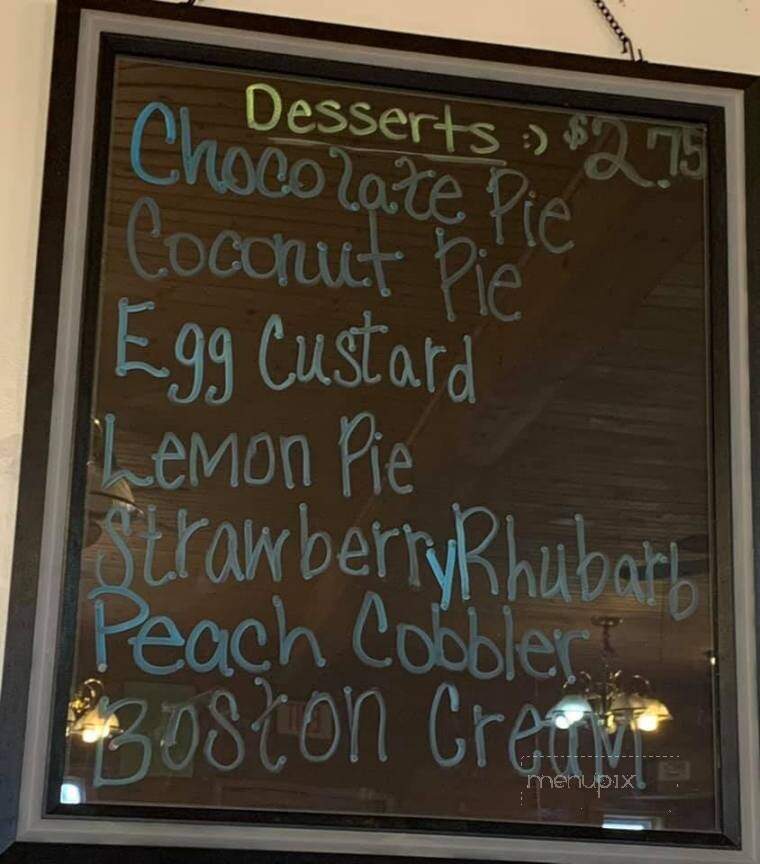 Desserts :) $2.75
Chocolate Pie
Coconut Pie
Egg Custard
Lemon Pie
Strawberry Rhubarb
Peach Cobbler
Boston Cream
menupix